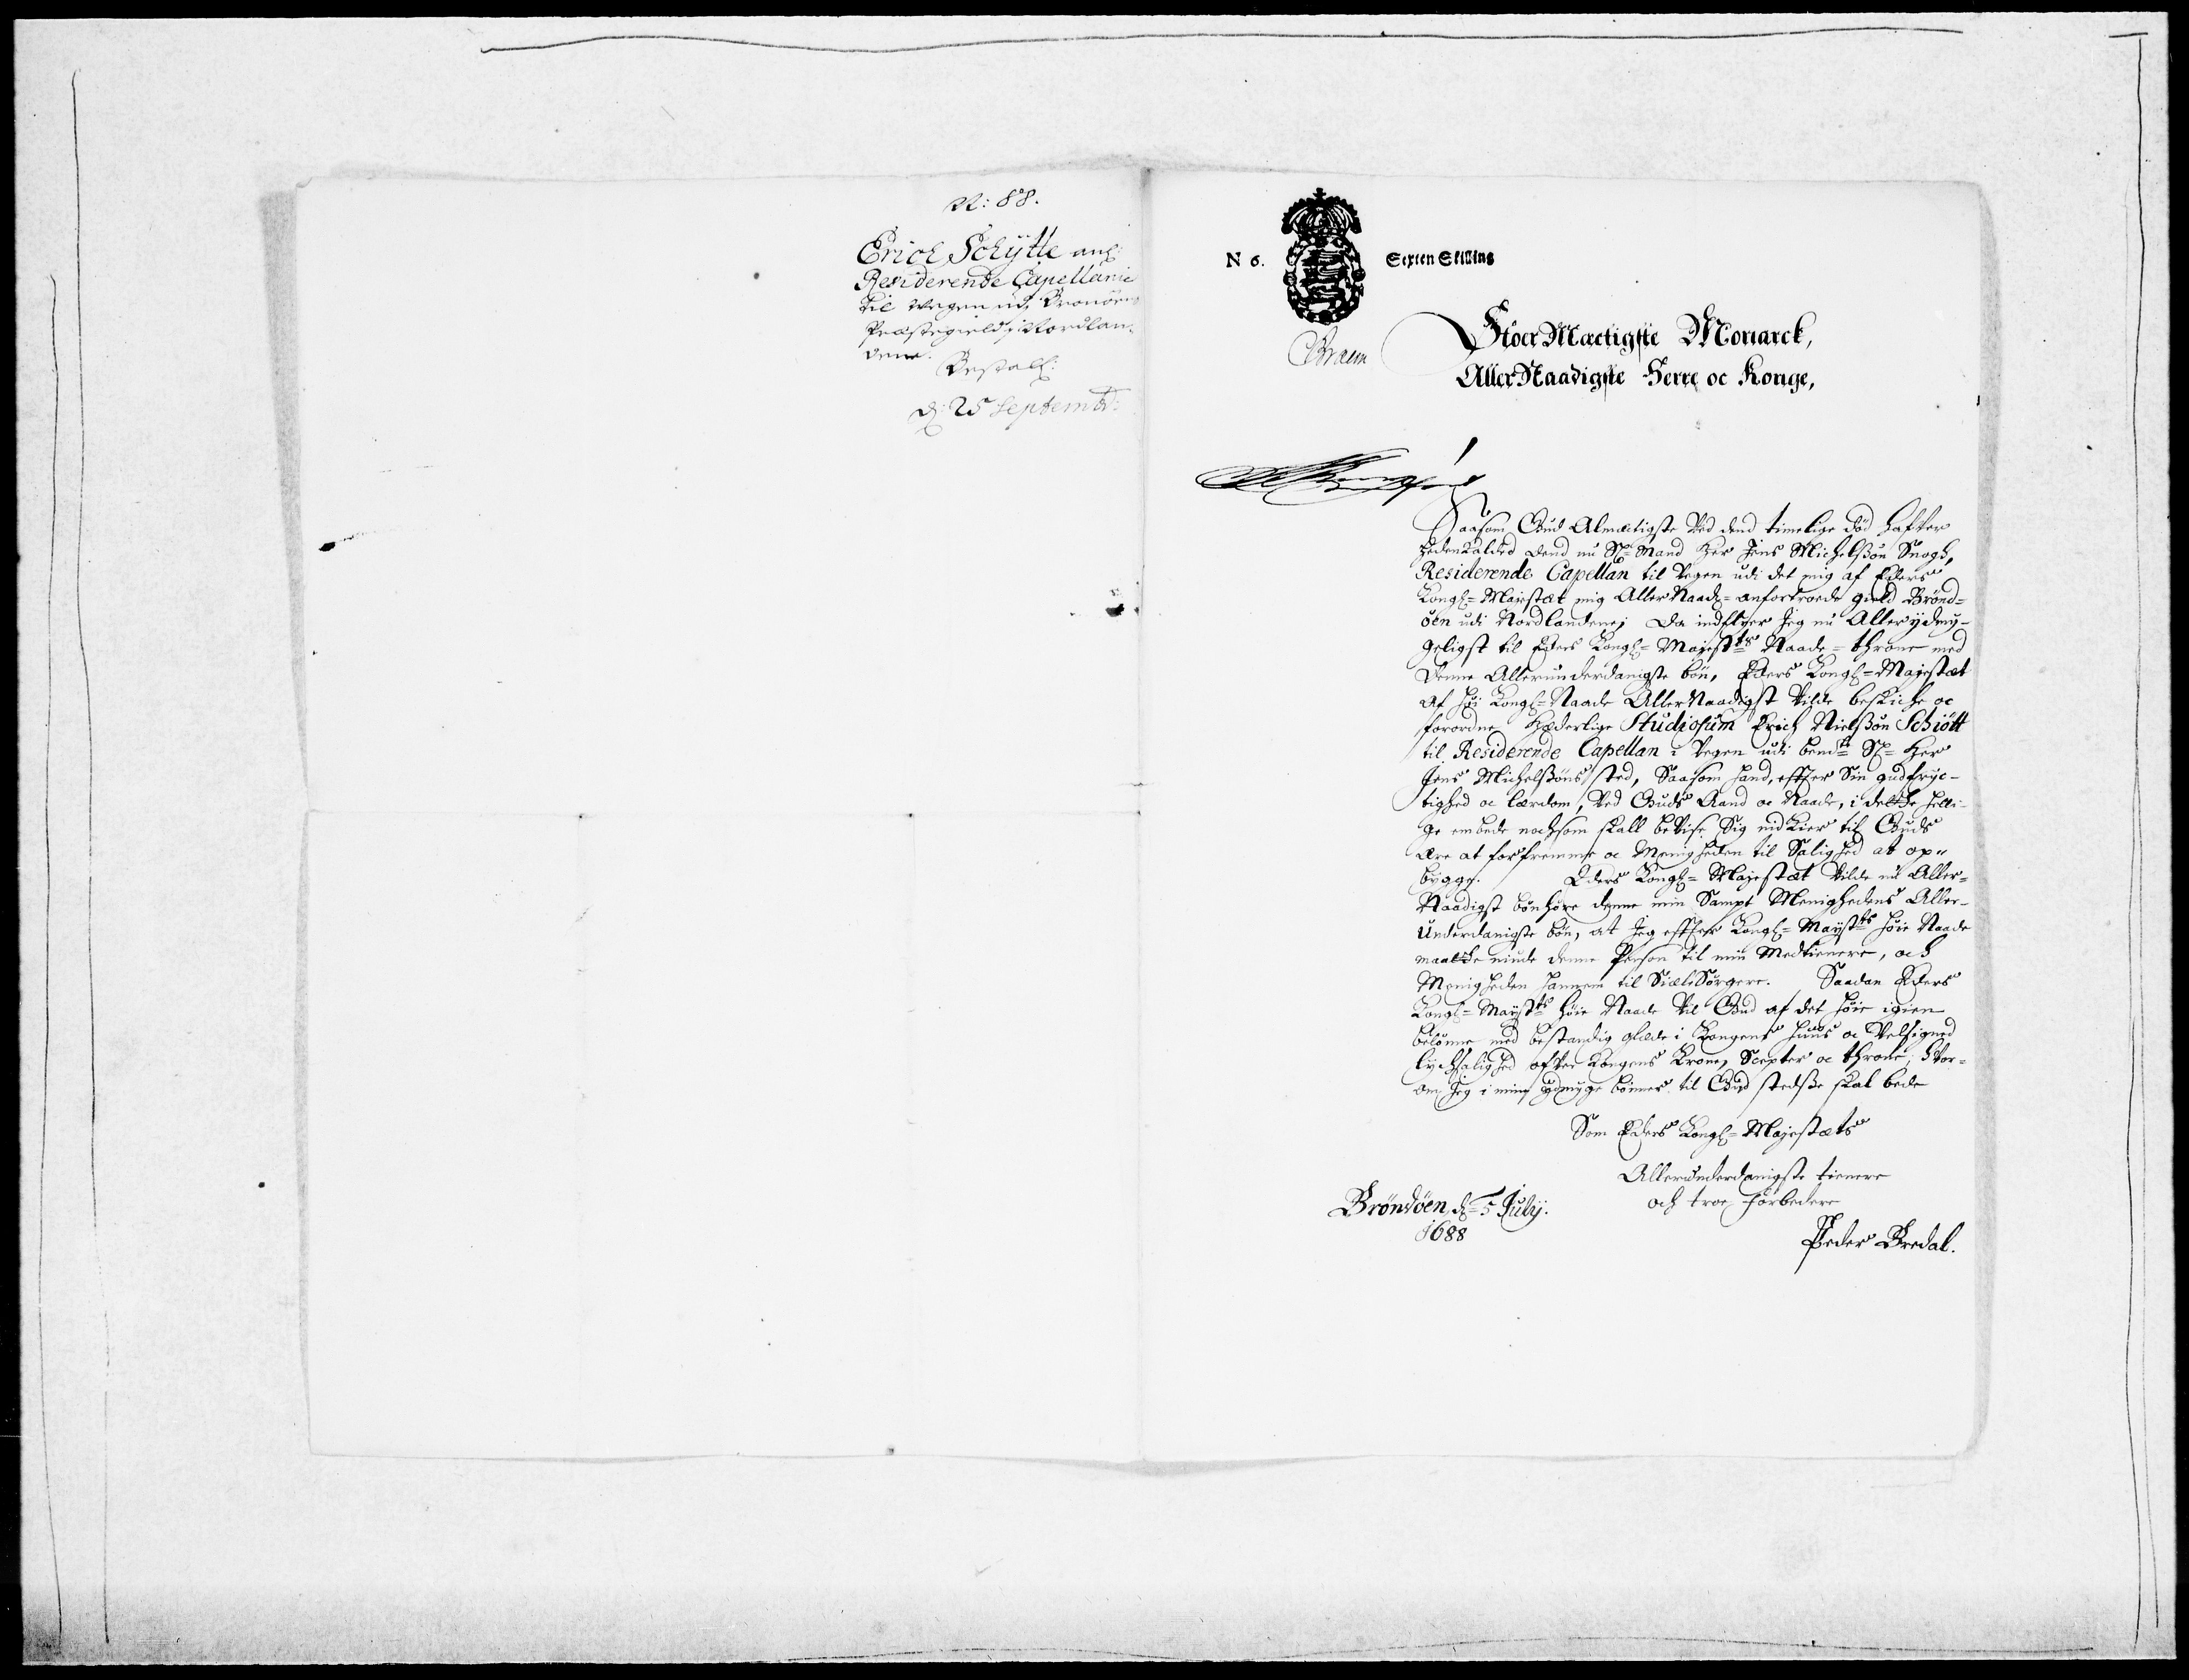 N: 88.
Erich Schytte anl:
Residerende Capellanie
til Wegen ud Brønöens
Præstegield i Nordlan-
dene.
Bestall:
d: 25 Septemb:
N 6.
Sexten Skilling
Braem
StoerMæctigste Monarck,
AllerNaadigste Herre oc Konge,
Saasom Gud Almectigste Ved dend timelige död hafver
hedenkalded dend nu Sl= Mand Her Jens Michelßön Snogh,
Residerende Capellan til Vegen udi det mig af Eders
Kongl= Majestæt mig AllerNaadl= anfortroede gield Brönd-
öen udi Nordlandene; Da indflyer Jeg nu Allerydmy-
geligst til Eders Kongl= Majestts Naade= throne med
denne Allerunderdanigste bön, Eders Kongl= Majestæt
af høi Kongl= Naade AllerNaadigst Vilde beskicke oc
forordne Hæderlige Studiosum Erich Nielßön Schiött
til Residerende Capellan i Vegen udi bemte Sl= Her
Jens Michelßöns sted, Saasom hand, efter Sin gudfryc-
tighed oc lærdom, Ved Guds Aand oc Naade, i dette helli-
ge embede nocksom skall bevise Sig nidkier til Guds
ære at forfremme oc Menigheden til Salighed at op-
bygge. Eders Kongl= Majestæt Vilde nu Aller-
Naadigst bönhöre denne min Sampt Menighedens Aller-
underdanigste bön, at Jeg efter Kongl= Maystts høie Naade
maatte niude denne Person til min Medtienere, och
Menigheden hannem til SiæleSörgere. Saadan Eders
Kongl= Maystts høie Naade Vil Gud af det høie igien
belönne med bestandig glæde i Kongens huus oc Velsigned
lycksalighed ofver Kongens Krone, Scepter oc throne; hvor-
om Jeg i mine ydmyge bönner til Gud stedße skal bede
Som Eders Kongl= Majestæts
Allerunderdanigste tienere
och troe forbedere
Bröndöen, d= 5 July.
1688
Peder Bredal.